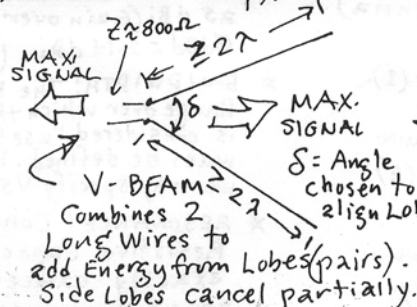 Z≈800Ω
≥2λ
MAX.
SIGNAL
δ
MAX.
SIGNAL
V-BEAM
≥2λ
δ=Angle
chosen to
align Lo
Combines 2
Long Wires to
add Energy from Lobes (pairs).
Side Lobes cancel partially